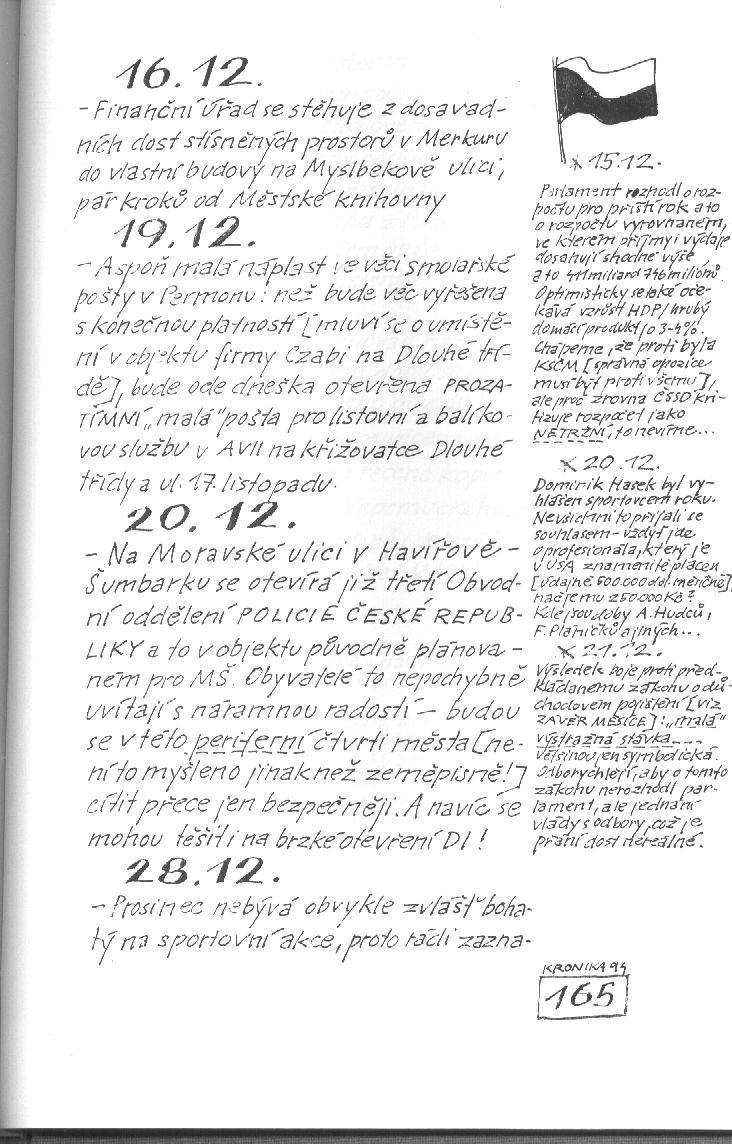 16.12.
- Finanční úřad se stěhuje z dosavad-
ních dost stísněných prostorů v Merkuru
do vlastní budovy na Myslbekově ulici,
pár kroků od Městské knihovny
19.12.
- Aspoň malá náplast ve věci smolařské
pošty v Permonu: než bude věc vyřešena
s konečnou platností [mluví se o umístě-
ní v objektu firmy Czabi na Dlouhé tří-
dě], bude ode dneška otevřena PROZA-
TÍMNÍ „malá" pošta pro listovní a balíko-
vou službu v AVII na křižovatce Dlouhé
třídy a ul. 17. listopadu.
20.12.
- Na Moravské ulici v Havířově -
Šumbarku se otevírá již třetí Obvod-
ní oddělení POLICIE ČESKÉ REPUB-
LIKY a to v objektu původně plánova-
ném pro MŠ. Obyvatelé to nepochybně
uvítají s náramnou radostí - budou
se v této periferní čtvrti města [ne-
ní to myšleno jinak než zeměpisně!]
cítit přece jen bezpečněji. A navíc se
mohou těšit i na brzké otevření DI!
28.12.
- Prosinec nebývá obvykle zvlášť boha-
tý na sportovní akce, proto rádi zazna-
* 15.12.
Parlament rozhodl o roz-
počtu pro příští rok a to
o rozpočtu vyrovnaném,
ve kterém příjmy i výdaje
dosahují shodné výše,
a to 411 miliard 746 milionů.
Optimisticky se také oče-
kává vzrůst HDP/hrubý
domácí produkt/o 3-4%.
Chápeme, že proti byla
KSČM [správná opozice
musí být proti všemu],
ale proč zrovna ČSSD kri-
tizuje rozpočet jako
NETRŽNÍ, to nevíme...
* 20.12.
Dominik Hasek byl vy-
hlášen sportovcem roku.
Ne všichni to přijali se
souhlasem - vždyť jde
o profesionála, který je
v USA znamenitě placen
[údajně 500.000 dol. měsíčně],
nač je mu 250.000 Kč?
Kde jsou doby A. Hudců,
F. Pláničků a jiných...
* 21.12.
Výsledek boje proti před-
kládanému zákonu o dů-
chodovém pojištění [viz
ZÁVĚR MĚSÍCE]: „malá"
výstražná stávka....
Většinou jen symbolická.
Odbory chtějí, aby o tomto
zákonu nerozhodl par-
lament, ale jednání
vlády s odbory, což je
přání dost nereálné.
KRONIKA 94
165